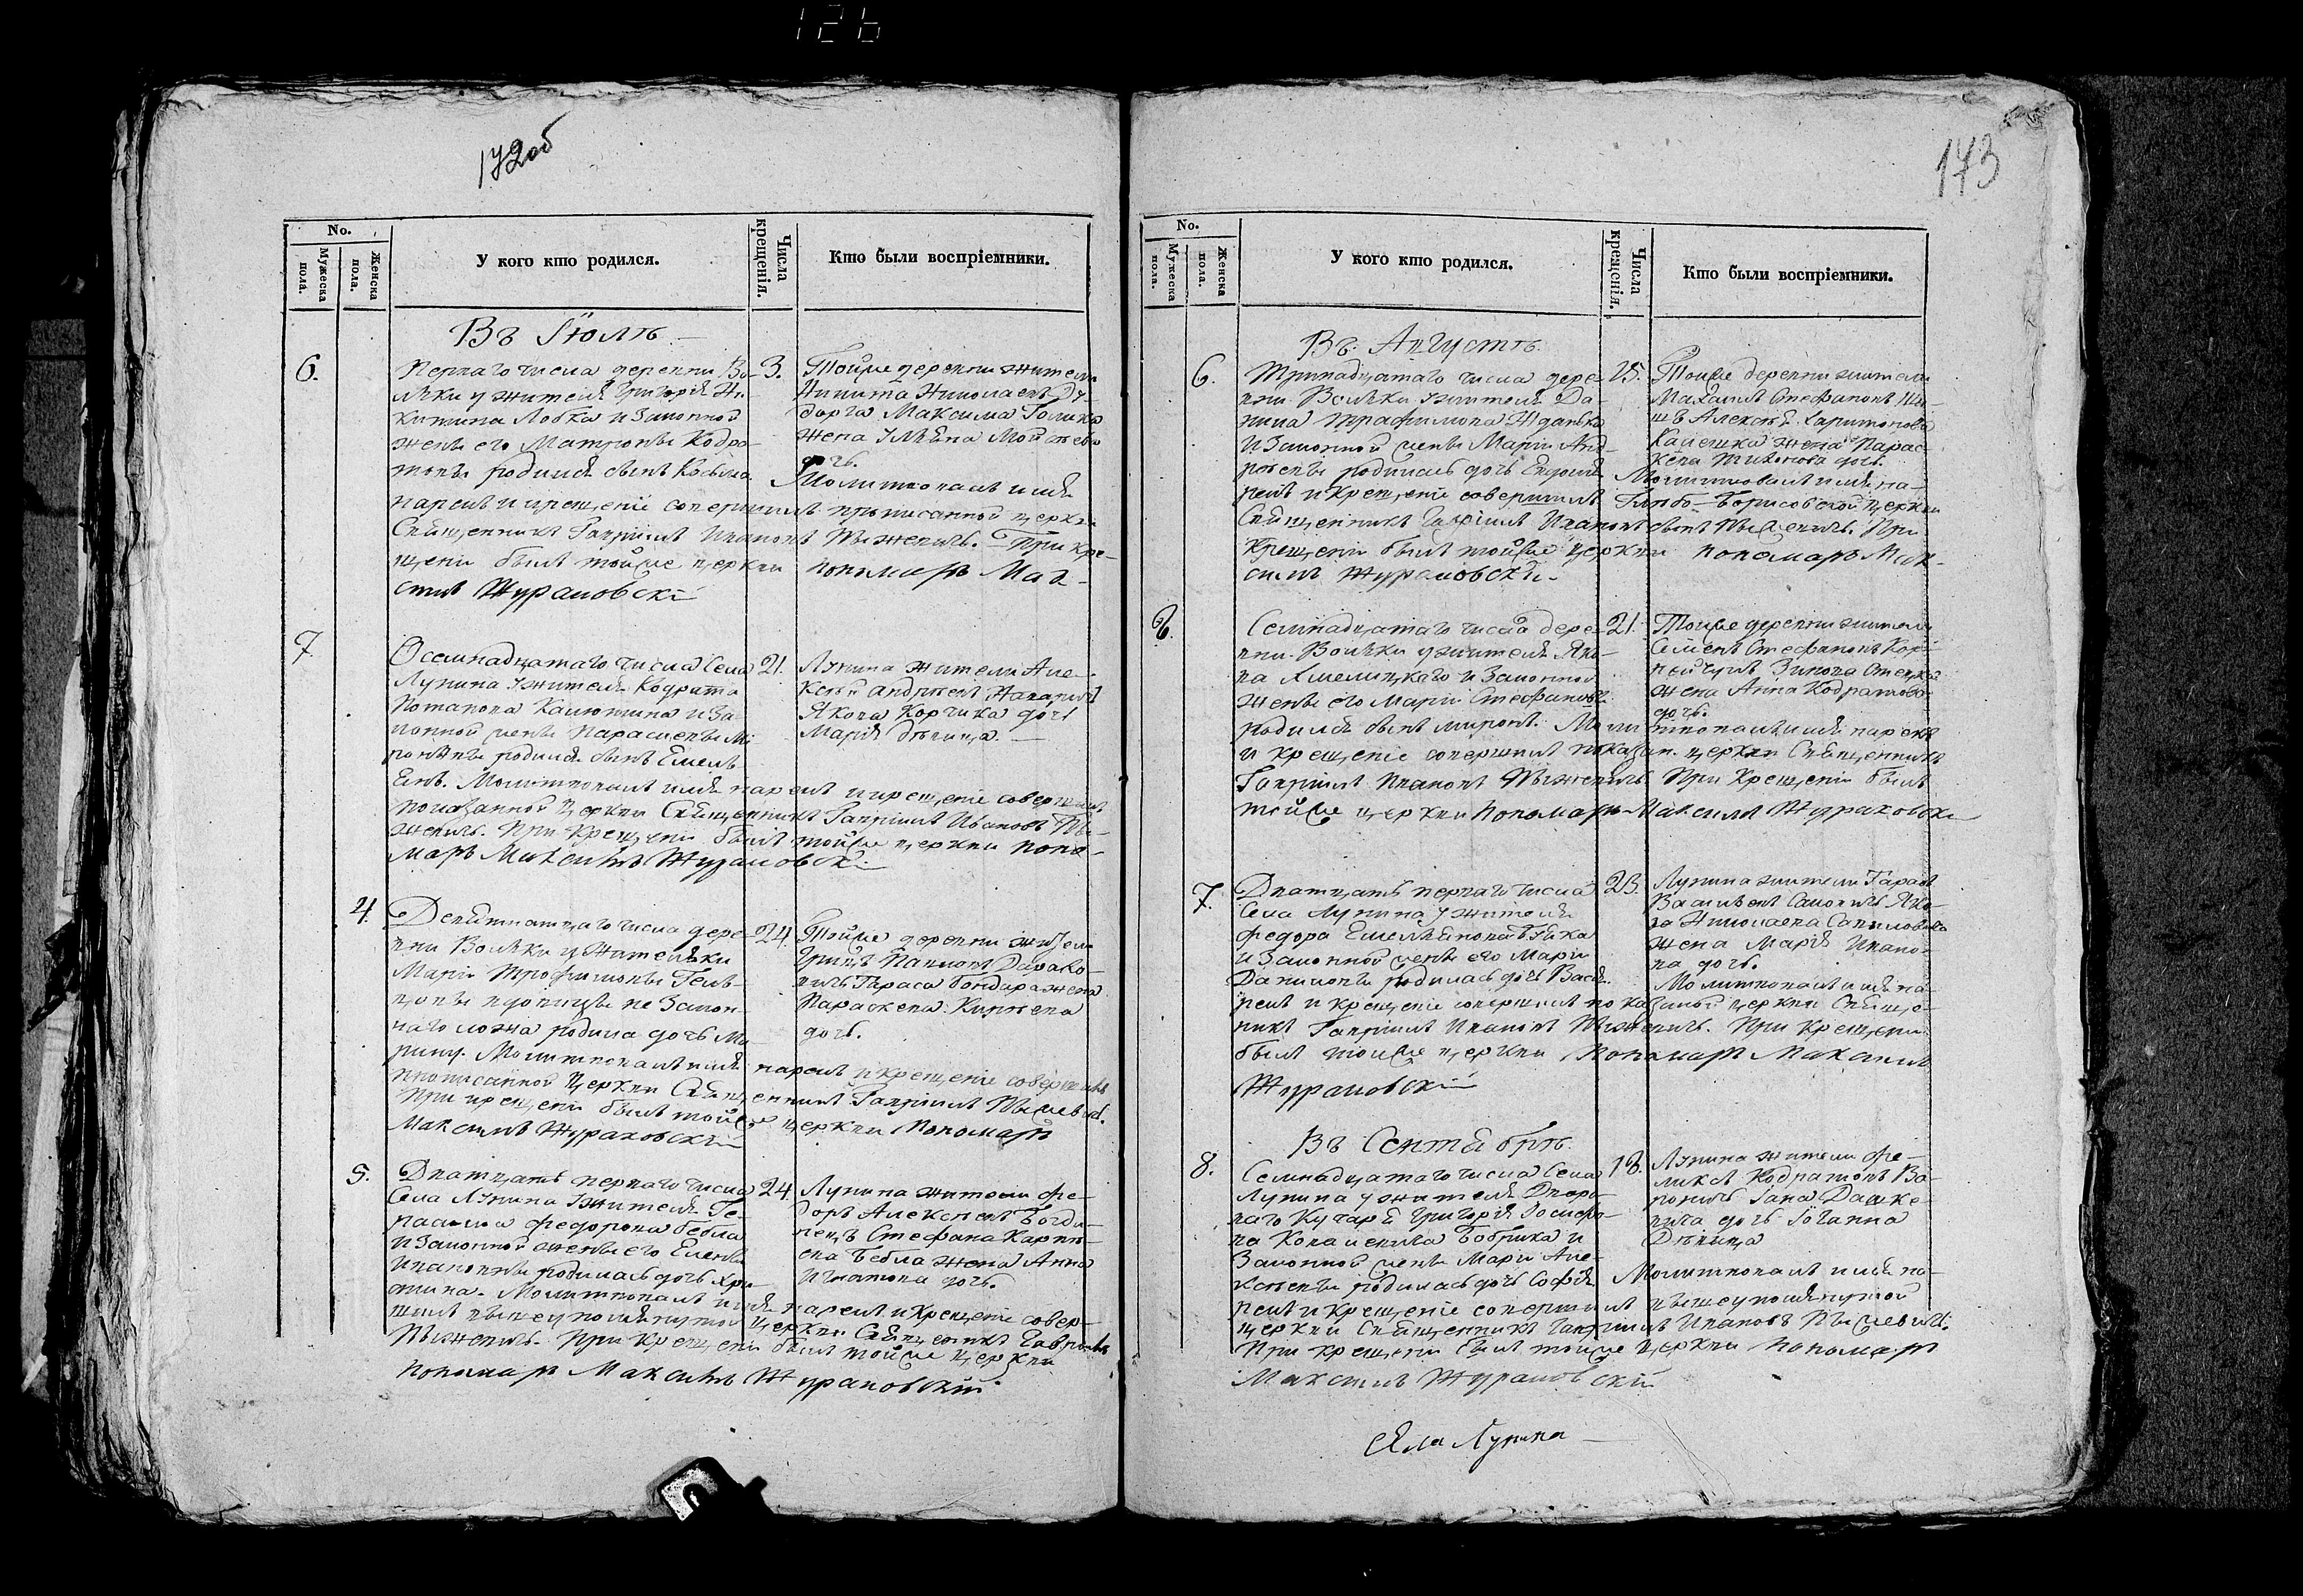 126
172об
No.
Мужеска пола.
Женска пола.
У кого кто родился.
Числа крещенія.
Кто были воспріемники.
Въ Іюлѣ
6.
Перваго числа деревни Во-
лѣки у жителя Григорія Ни-
китина Ловка и законной
жены его Матроны Кодра-
товы родился сынъ Козьма. Молитвовалъ имя
нарекъ и крещеніе совершилъ прописанной церкви
Священникъ Гавріилъ Ивановъ Выжевичь. При кре-
щеніи былъ тойже церкви пономарь Мак-
симъ Жураковскі
3.
Тойже деревни жители
Никита Николаевъ
Максима Голика
жена Ульяна Мойсѣева
дочь.
7.
Осемнадцатаго числа Села
Лунина у жителя Кодрата
Потапова Калютина и за-
конной жены Парасцевы Ми-
роновы родился сынъ Емель-
янъ. Молитвовалъ имя нарекъ и крещеніе совершилъ
показанной церкви Священникъ Гавріилъ Ивановъ Вы-
жевичь. При крещеніи былъ тойже церкви поно-
марь Максимъ Жураковскі.
21.
Лунина жители Але-
ксѣй Андреевъ
Якова Корчика дочь
Марія дѣвица.
4.
Девятнадцатаго числа дере-
вни Волѣки у жительки
Маріи Трофимовы Гель-
цовы вдовицы не закон-
наго ложа родила дочь Ма-
рину. Молитвовалъ имя нарекъ и крещеніе совершилъ
прописанной церкви Священникъ Гавріилъ Выжевичь.
При крещеніи былъ тойже церкви пономарь
Максимъ Жураковскій
24.
Тойже деревни жители
Грицъ Павловъ Дарако-
вичъ Тараса Бондара жена
Параскева Киріева
дочь.
5.
Дватцать перваго числа
Села Лунина у жителя Ге-
расима Федорова Бебла
и законной жены его Елены
Ивановны родилась дочь Хри-
стина. Молитвовалъ имя нарекъ и крещеніе совер-
шилъ вышеупомянутой церкви Священникъ Гавріилъ
Выжевичь. При крещеніи былъ тойже церкви
пономарь Максимъ Жураковскій.
24.
Лунина жители Фе-
доръ Алексеевъ Богда-
нецъ Стефана Карпѣ-
ева Бебла жена Анна
Игнатова дочь.
143
No.
Мужеска пола.
Женска пола.
У кого кто родился.
Числа крещенія.
Кто были воспріемники.
Въ Августѣ.
6.
Тринадцатаго числа дере-
вни Волѣки у жителя Да-
нила Трафимова Жданька
и законной жены Маріи Анд-
реевы родилась дочь Евдокія. Молитвовалъ имя на-
рекъ и крещеніе совершилъ Глѣбо-Борисовской церкви
Священникъ Гавріилъ Ивановъ сынъ Выжевичь. При
крещеніи былъ тойже церкви пономарь Мак-
симъ Жураковскі.
25.
Тойже деревни жители
Михаилъ Стефановъ
Алексѣя Харитонова
Калешка жена Парас-
кева Тихонова дочь.
8.
Семнадцатаго числа дере-
вни Волѣки у жителя Яко-
ва Хмелицкаго и законной
жены его Маріи Стефановы
родился сынъ Миронъ. Молитвовалъ имя нарекъ
и крещеніе совершилъ показан. церкви Священникъ
Гавріилъ Ивановъ Выжевичь При крещеніи былъ
тойже церкви пономарь Максимъ Жураковскі
21.
Тойже деревни жители
Семенъ Стефановъ Кор-
нейчукъ Зинова Стецка
жена Анна Кодратова
дочь.
7.
Дватцать перваго числа
Села Лунина у жителя
Федора Емельянова Быка
и законной жены его Маріи
Даниловы родилась дочь Васа. Молитвовалъ имя на-
рекъ и крещеніе совершилъ показаной церкви Священ-
никъ Гавріилъ Ивановъ Выжевичь. При крещеніи
былъ тойже церкви пономарь Максимъ
Жураковскій
23.
Лунина жители Тарасъ
Васильевъ Яко-
ва Николаева
жена Марія Ивано-
ва дочь.
Въ Сентябрѣ.
8.
Семнадцатаго числа Села
Лунина у жителя Дворо-
ваго Кучара Григорія Іосифо-
ва Бобрика и
законной жены Маріи Але-
ксеевы родилась дочь Софія Молитвовалъ имя на-
рекъ и крещеніе совершилъ вышеупомянутой
церкви Священникъ Гавріилъ Ивановъ Выжевичь.
При крещеніи былъ тойже церкви пономарь
Максимъ Жураковскій
18.
Лунина жители Фе-
ликсъ Кодратовъ Во-
роничь Іана Дашке-
вича дочь Іоганна
Дѣвица
Села Лунина